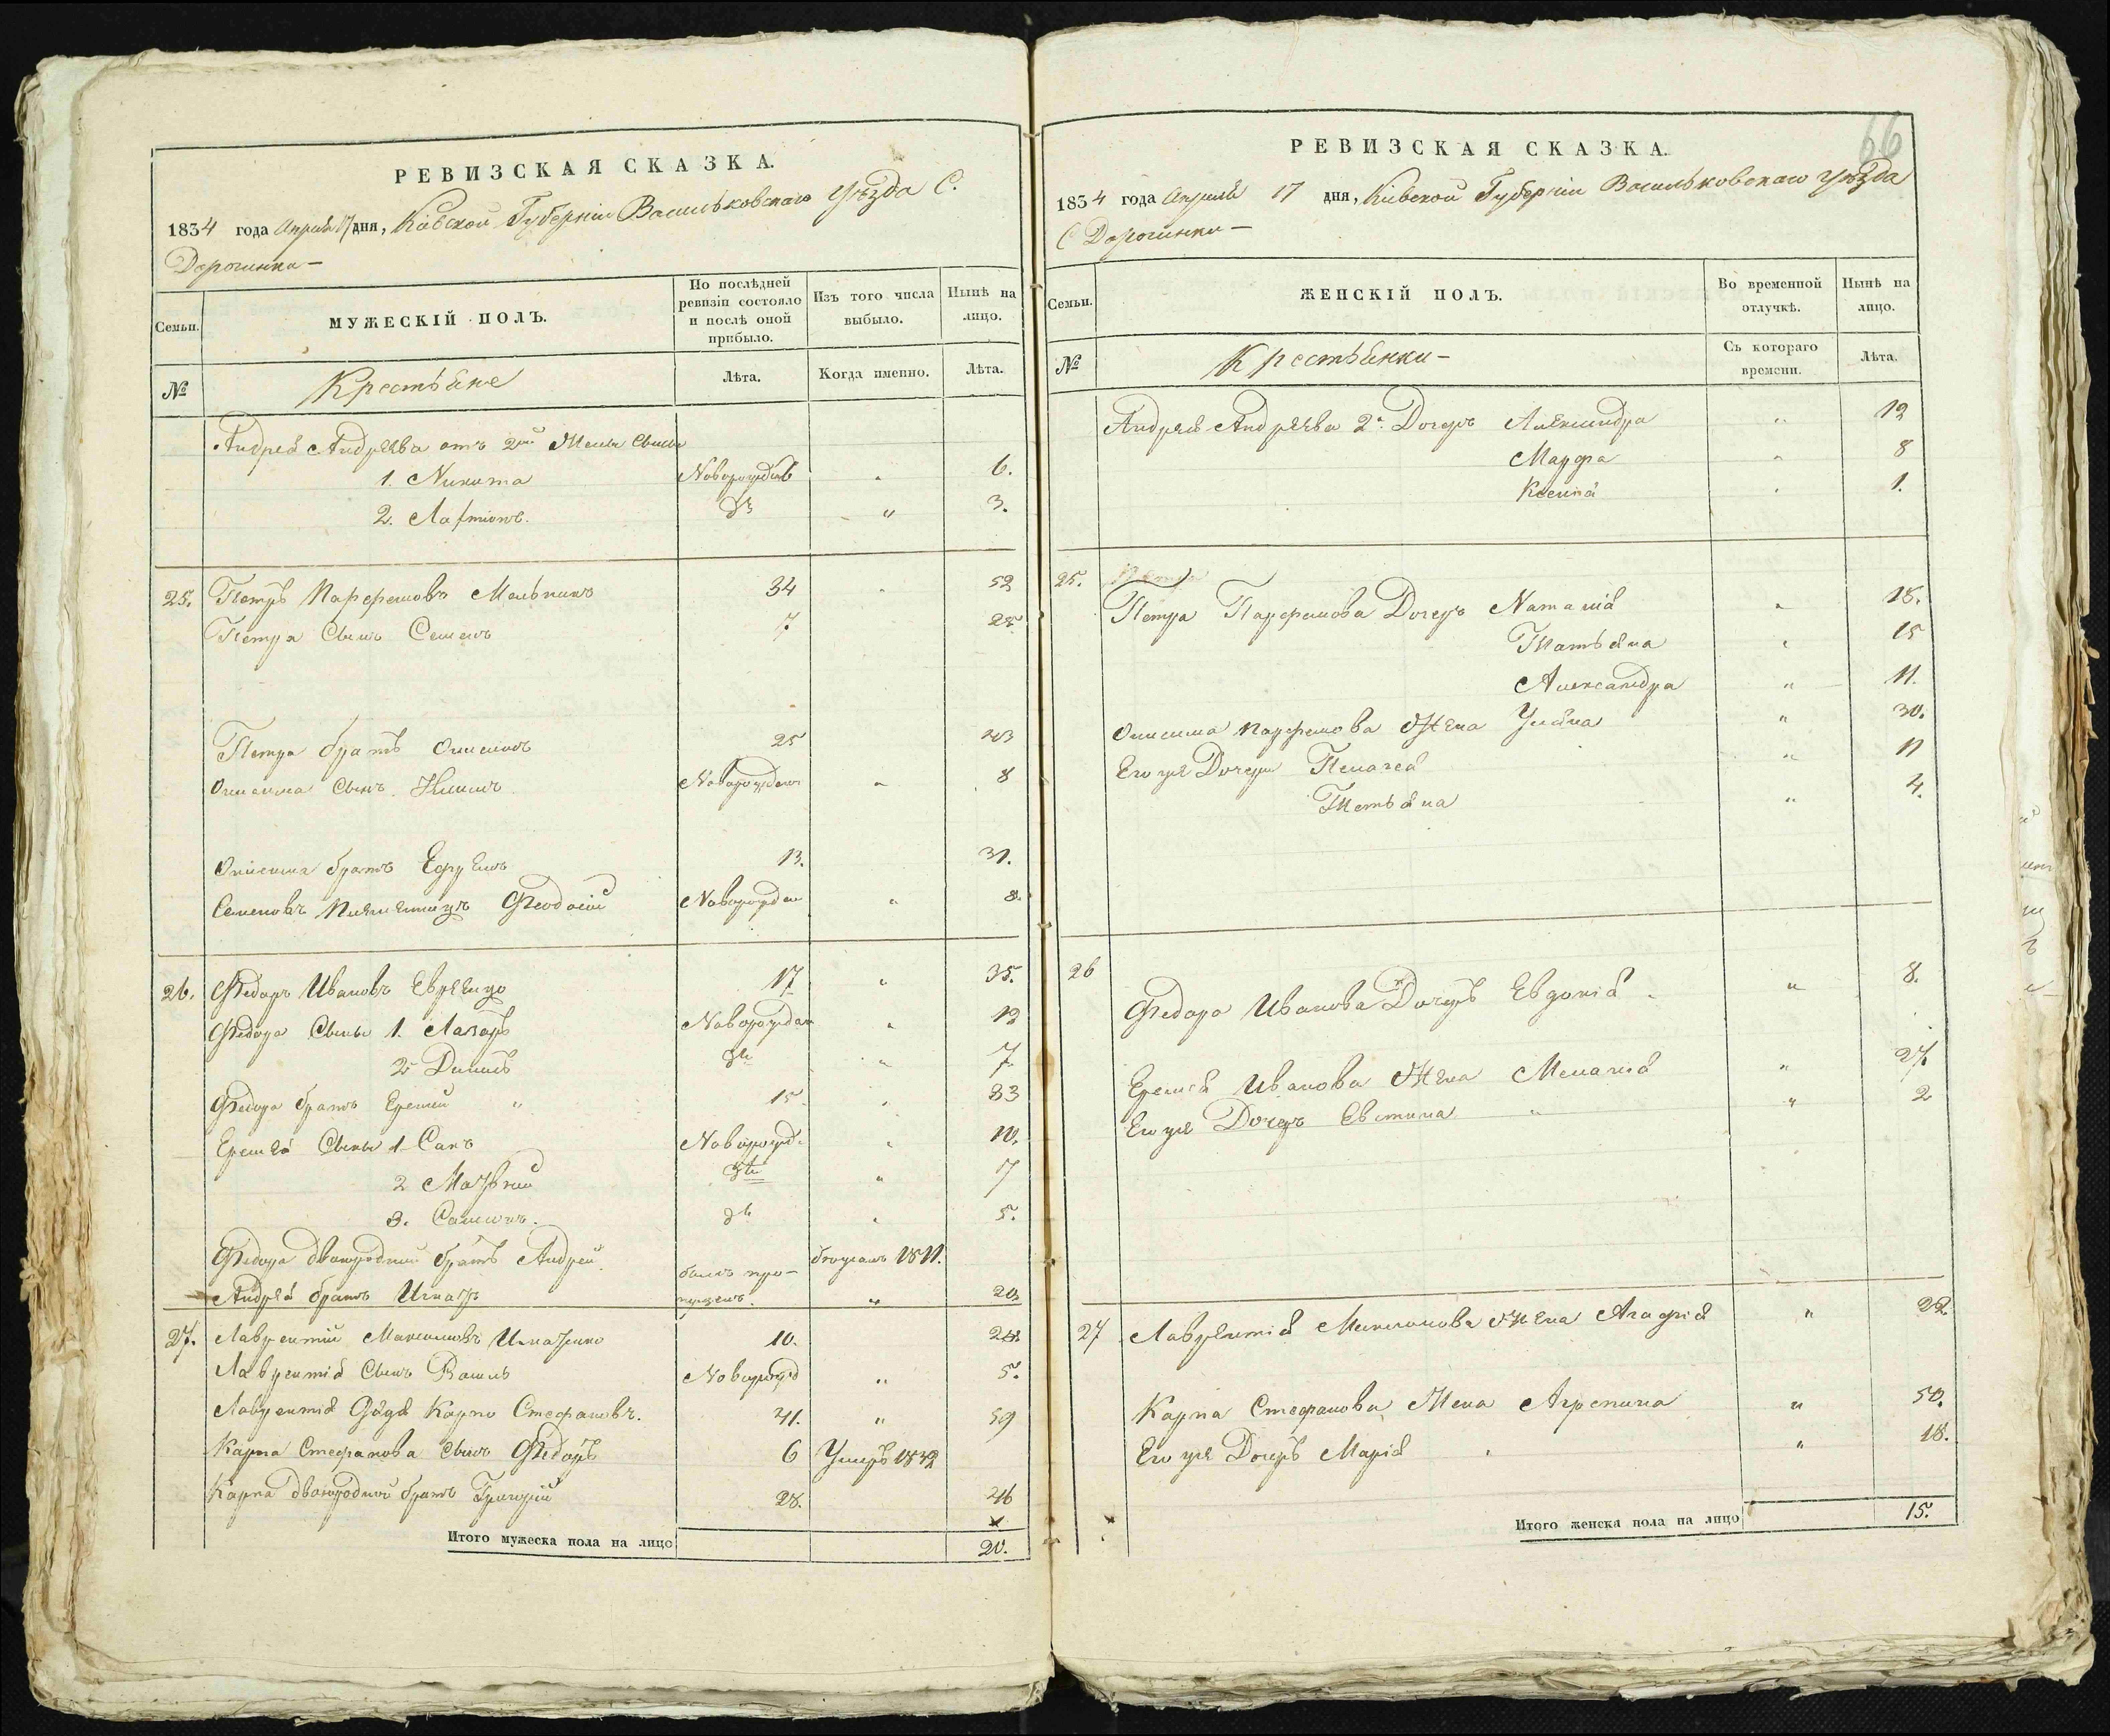 РЕВИЗСКАЯ СКАЗКА.
1834 года Апреля 17 дня, Кіевской Губерніи Васильковскаго Уѣзда С.
Дорогинки —
Семьи.
МУЖЕСКІЙ ПОЛЪ.
По послѣдней ревизіи состояло и послѣ оной прибыло.
Изъ того числа выбыло.
Нынѣ на лицо.
№
Крестьяне
Лѣта.
Когда именно.
Лѣта.
Андрея Андреева отъ 2й Жены Сыны
1. Никита Новорожден " 6.
2. Лаврion "  3.
25. Петръ Парфемовъ Мельникъ 34 " 52
Петра Сынъ Семенъ 7 25
Петра братъ Онисимъ 25 43
Онисима Сынъ Климъ Новорожден " 8
Онисима братъ Ефремъ 13. 31.
Семеновъ Племенницъ Феодосій Новорожден " 8.
26. Федоръ Ивановъ 17 " 35.
Федора Сыны 1. Лазарь Новорожден " 12
2 " 7
Федора братъ Еремій " 15 " 33
Еремѣя Сыны 1 Сакъ Новорожд. " 10.
2 Матвій " 7
3. Самсонъ. " 5.
Федора двоюродный братъ Андрей бѣжалъ 1811.
Андрея братъ Игнатъ былъ про-
пущенъ. " 20
27. Лаврентій Максимовъ Игнатенко 10. 28
Лаврентія Сынъ Василь Новорожд " 5.
Лаврентія Дядя Карпо Стефановъ. 41. " 59
Карпа Стефанова сынъ Федоръ 6 Умеръ 1832
Карпа двоюродной братъ Григорій 28. 46
Итого мужеска пола на лицо 20.
66
РЕВИЗСКАЯ СКАЗКА.
1834 года Апреля 17 дня, Кіевской Губерніи Васильковскаго уѣзда
С Дорогинки —
Семьи.
ЖЕНСКІЙ ПОЛЪ.
Во временной отлучкѣ.
Нынѣ на лицо.
№
Крестьянки —
Съ котораго времени.
Лѣта.
Андрея Андреева Дочеръ Александра " 12
Марфа " 8
Ксенія " 1.
25.
Петра Парфемова Дочерь Наталія " 18.
Татьяна " 15
Александра " 11.
Онисима Парфемова Жена Уляна " 30.
Его же Дочери Пелагея " 11
Татьяна " 4.
26
Федора Иванова Дочерь Евдокія " 8.
Еремѣя Иванова Жена Меланія " 27.
Его же Дочерь Евстина " 2
27 Лаврентія Максимова Жена Агафія " 22
Карпа Стефанова Жена Агрепина " 50.
Его же Дочерь Марія " 18.
Итого женска пола на лицо 15.